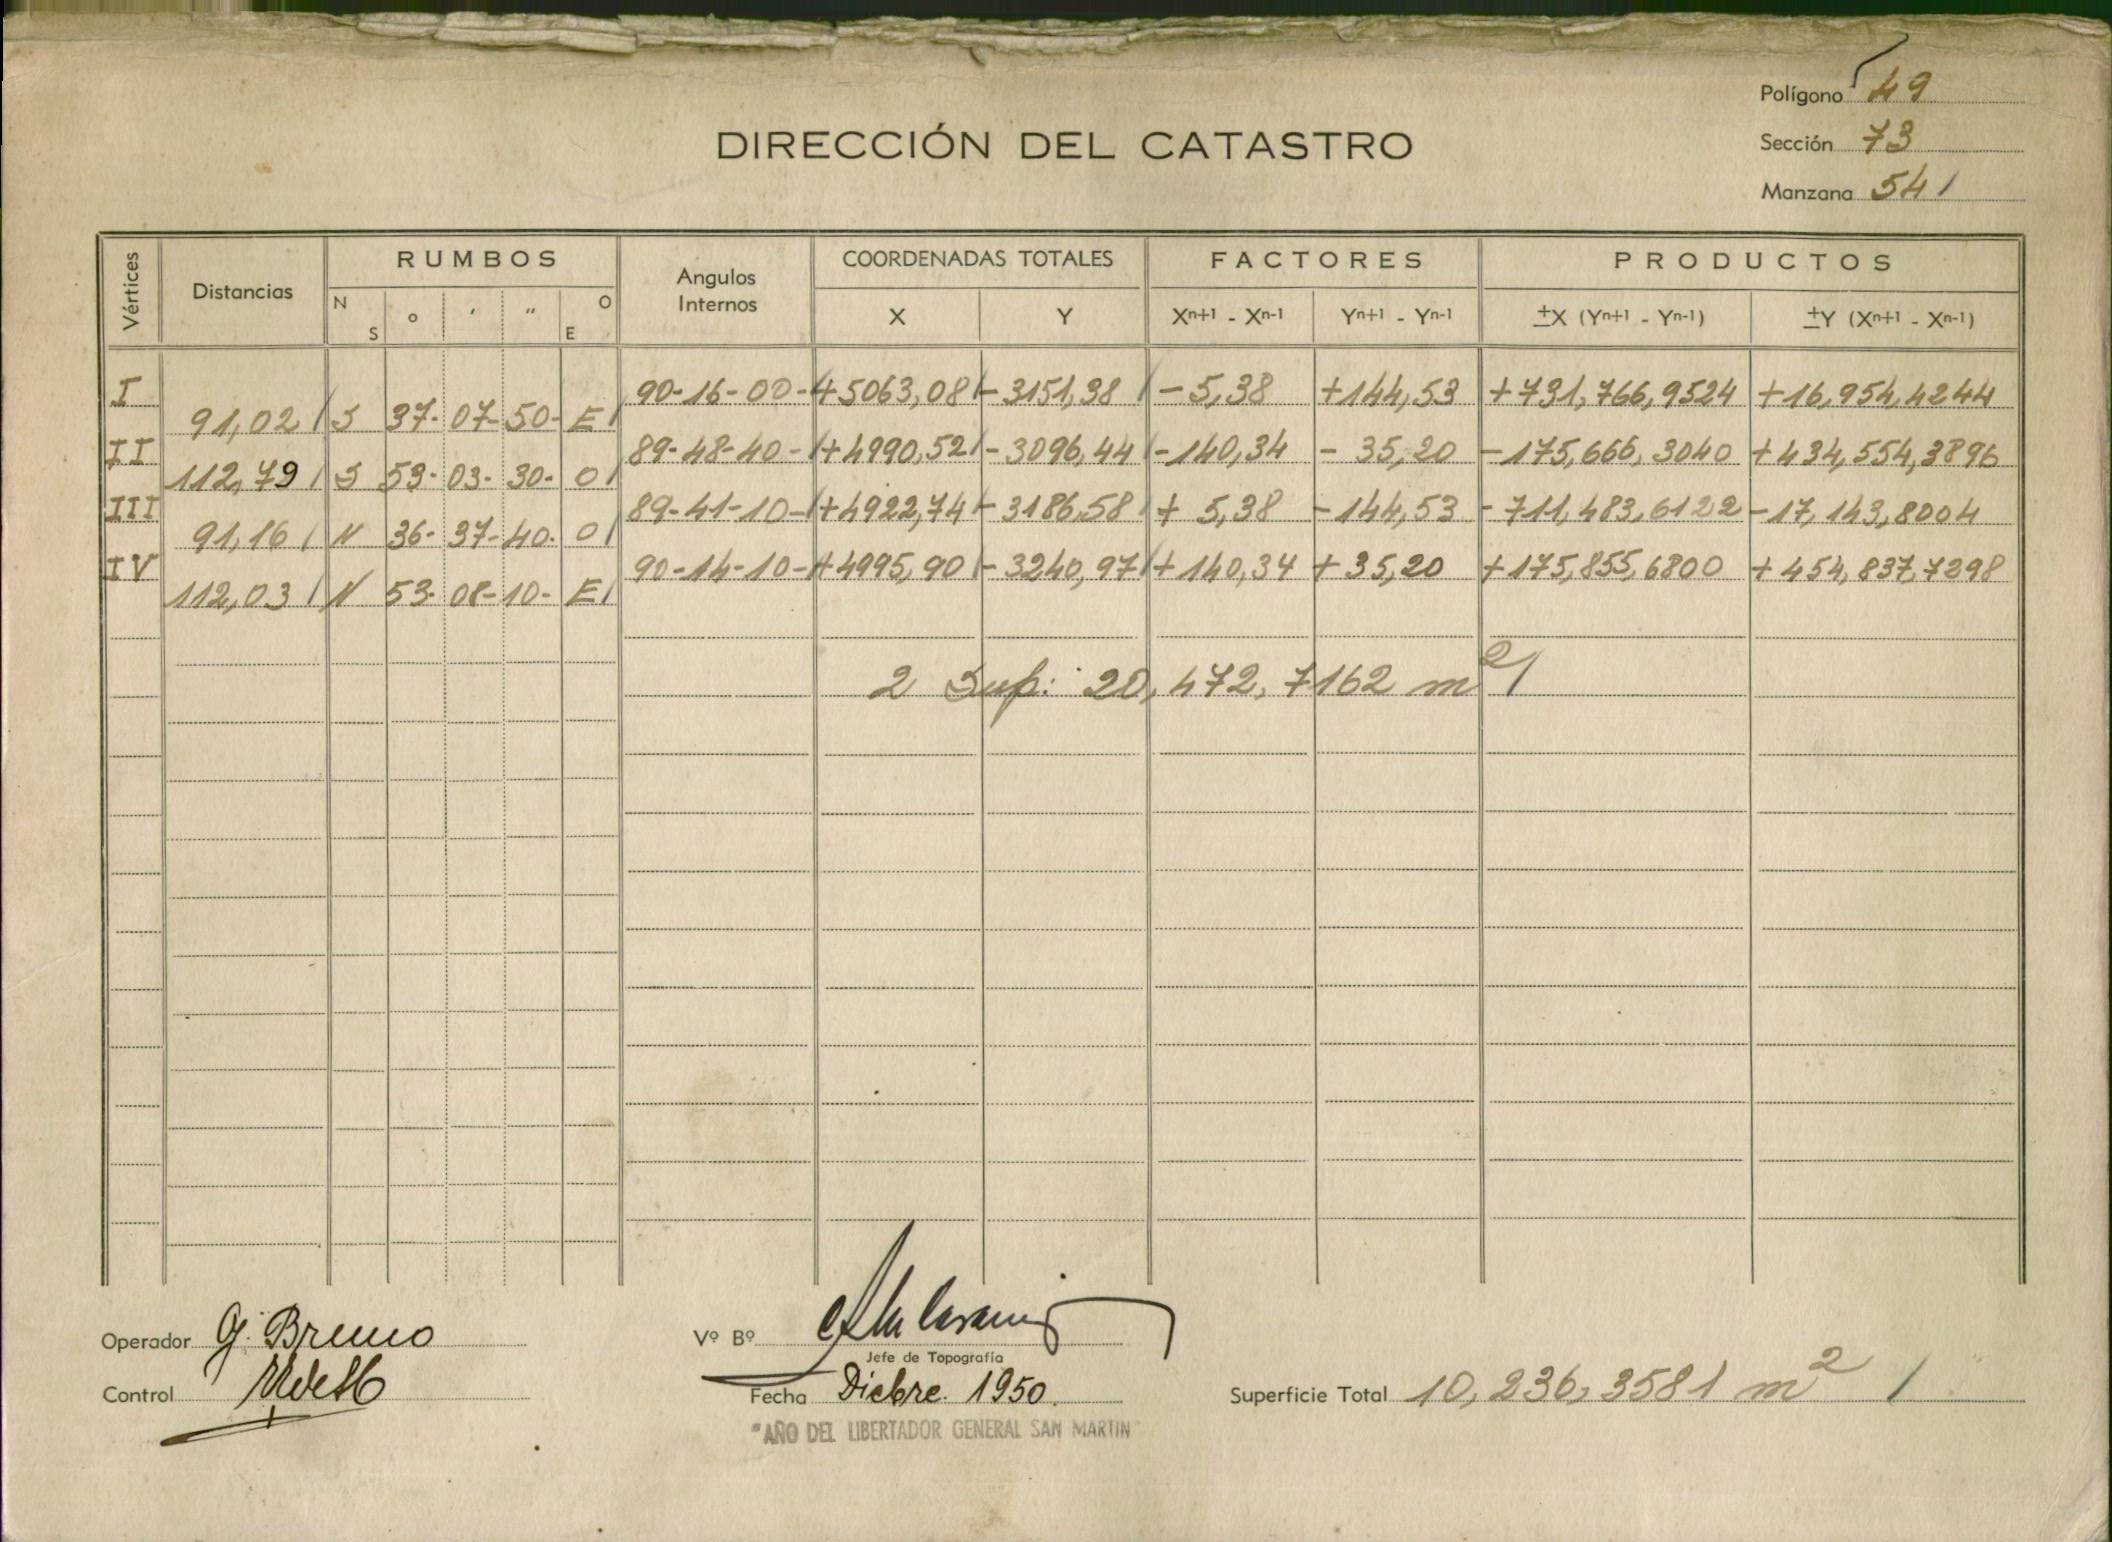 Polígono 49
DIRECCIÓN DEL CATASTRO
Sección 73
Manzana 541
Vértices
Distancias
RUMBOS
N S ° ' " O E
Angulos Internos
COORDENADAS TOTALES
X Y
FACTORES
Xn+1 - Xn-1 Yn+1 - Yn-1
PRODUCTOS
±X (Yn+1 - Yn-1) ±Y (Xn+1 - Xn-1)
I 90-16-00- +5063,08 -3151,38 -5,38 +144,53 +731,766,9524 +16,954,4244
91,02 S 37- 07- 50- E
II 89-48-40- +4990,52 -3096,44 -140,34 - 35,20 -175,666,3040 +434,554,3896
112,79 S 53- 03- 30- O
III 89-41-10- +4922,74 -3186,58 + 5,38 -144,53 -711,483,6122 -17,143,8004
91,16 N 36- 37- 40- O
IV 90-14-10- +4995,90 -3240,97 +140,34 +35,20 +175,855,6800 +454,837,7298
112,03 N 53- 08- 10- E
2 Sup: 20,472,7162 m2
Operador G. Bruno
Vº Bº
Jefe de Topografía
Control
Fecha Dicbre. 1950.
Superficie Total 10,236,3581 m2
"AÑO DEL LIBERTADOR GENERAL SAN MARTIN"